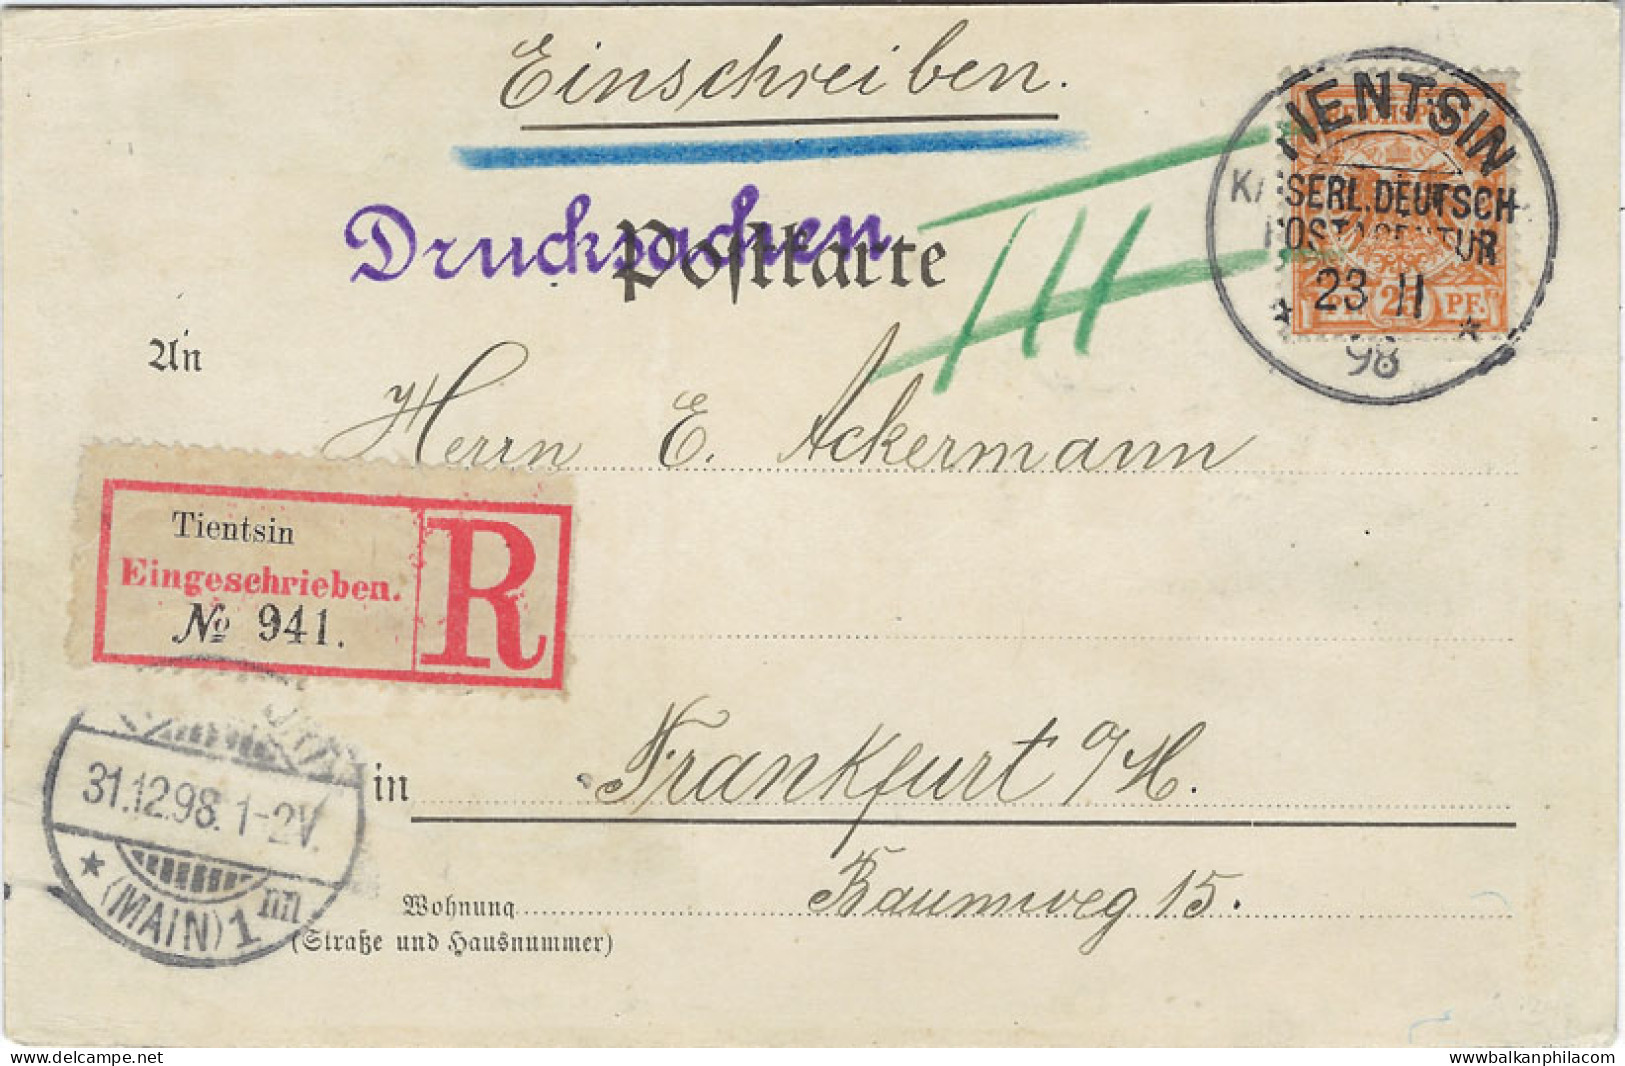 Einschreiben.
Drucksachen
Postkarte
TIENTSIN
KAISERL. DEUTSCH
POSTAGENTUR
23 11
98
REICHSPOST
25 PF.
An
Herrn E. Ackermann
Tientsin
Eingeschrieben.
№ 941.
R
in Frankfurt a/M.
31.12.98. 1-2V.
(MAIN) 1
nn
Wohnung Baumweg 15.
(Straße und Hausnummer)
delcampe.net
wwwbalkanphilacom